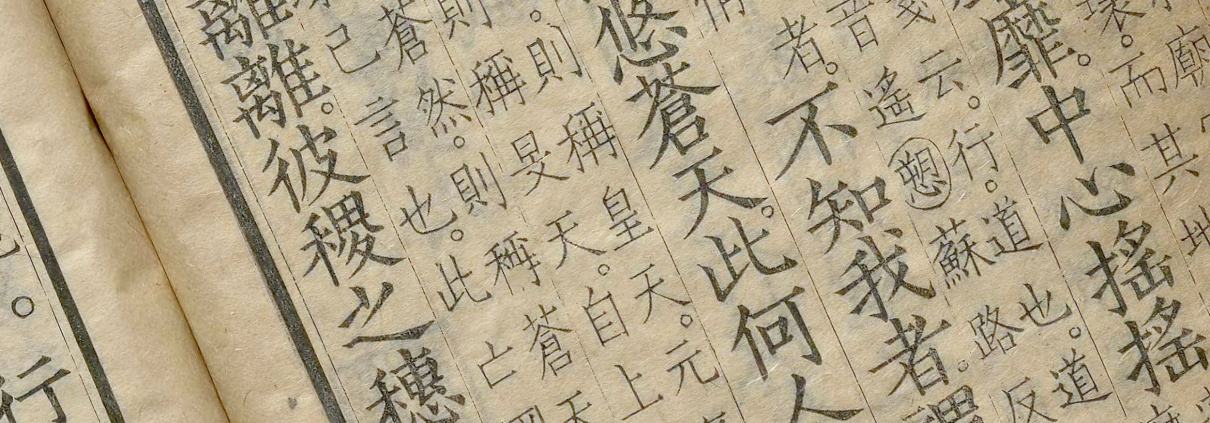 廟
環。而其地
靡。中心搖搖
云。行。道也。道
音遙愬蘇路反
者。不知我者。謂
悠蒼天。此何人
則稱皇天。元
則稱旻天。自上
蒼然。則稱蒼天
己言也。此亡
離離。彼稷之穗
。行